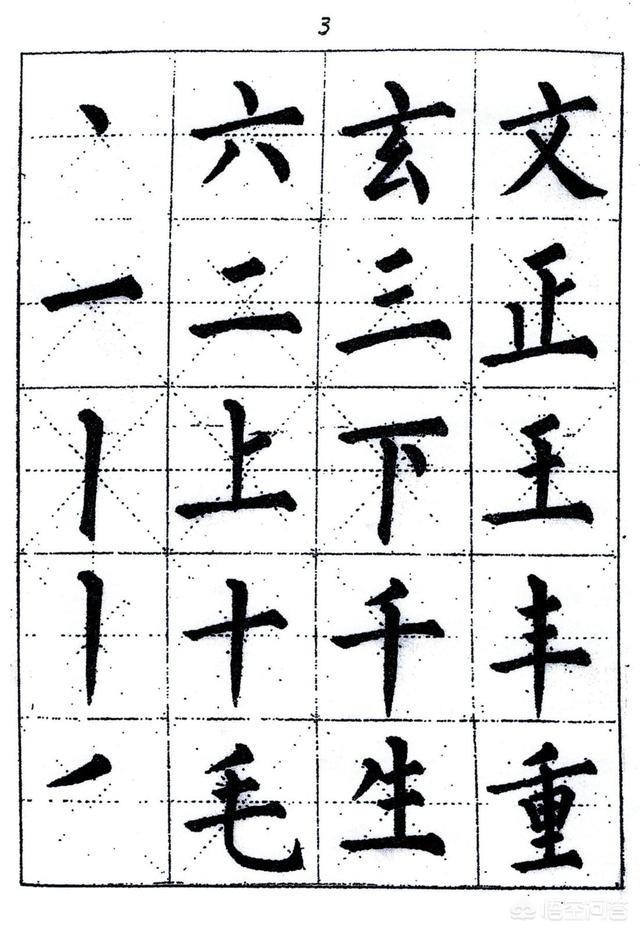 3
丶六玄文
一二三正
丨上下王
丨十千丰
㇒毛生重
悟空问答